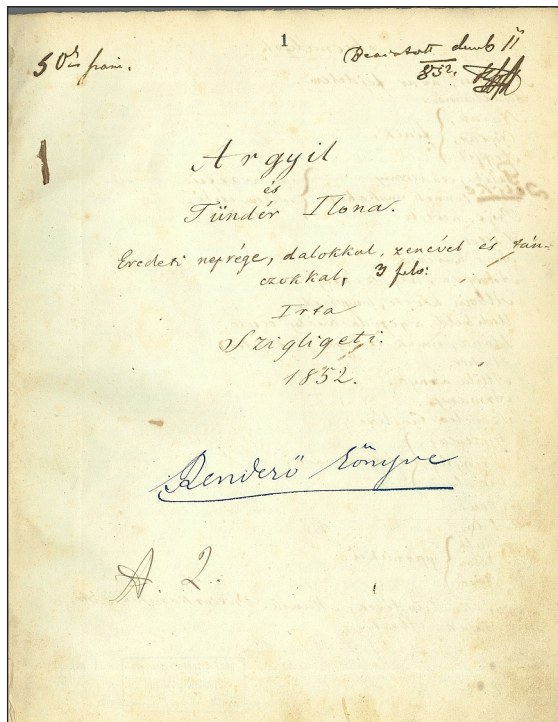 1
Argyil
és
Tündér Ilona.
Eredeti néprége, dalokkal, zenével és tán-
czokkal, 3 felv:
Irta
Szigligeti.
1852.
Rendező könyve
A. 2.